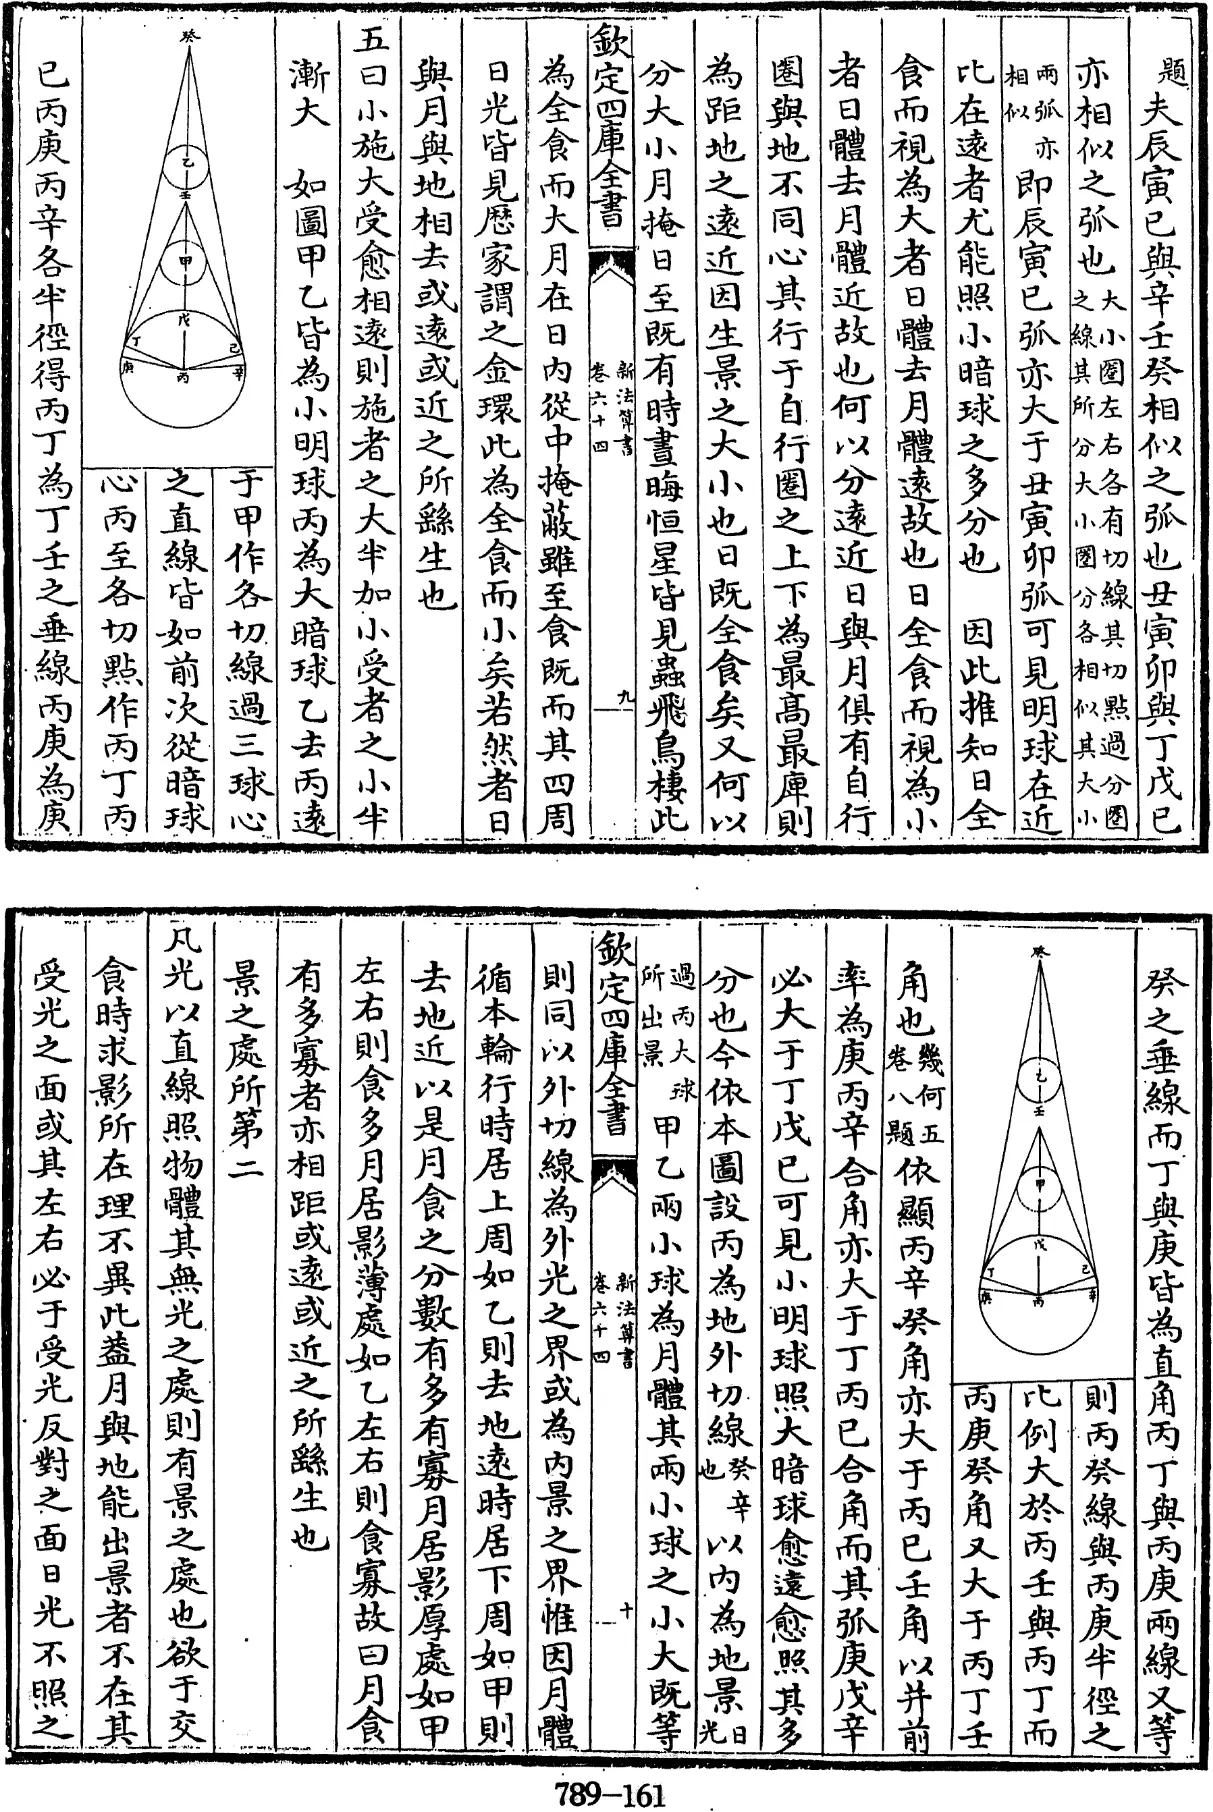 題夫辰寅已與辛壬癸相似之弧也丑寅卯與丁戊已
亦相似之弧也大小圈左右各有切線其切㸃過分圈
之線其所分大小圈分各相似其大小
兩弧亦
相似
即辰寅已弧亦大于丑寅卯弧可見明球在近
比在逺者尤能照小暗球之多分也 因此推知日全
食而視為大者日體去月體逺故也日全食而視為小
者日體去月體近故也何以分逺近日與月俱有自行
圈與地不同心其行于自行圈之上下為最髙最庳則
為距地之逺近因生景之大小也日既全食矣又何以
分大小月掩日至既有時晝晦恒星皆見蟲飛鳥棲此
欽定四庫全書
新法算書
卷六十四
九
為全食而大月在日内從中掩蔽雖至食既而其四周
日光皆見歴家謂之金環此為全食而小矣若然者日
與月與地相去或逺或近之所繇生也
五曰小施大受愈相逺則施者之大半加小受者之小半
漸大 如圖甲乙皆為小明球丙為大暗球乙去丙逺
癸
乙
壬
甲
戊
丁
己
庚
丙
辛
于甲作各切線過三球心
之直線皆如前次從暗球
心丙至各切㸃作丙丁丙
已丙庚丙辛各半徑得丙丁為丁壬之垂線丙庚為庚
癸之垂線而丁與庚皆為直角丙丁與丙庚兩線又等
癸
乙
壬
甲
戊
丁
己
庚
丙
辛
則丙癸線與丙庚半徑之
比例大於丙壬與丙丁而
丙庚癸角又大于丙丁壬
角也幾何五
卷八題五
依顯丙辛癸角亦大于丙已壬角以并前
率為庚丙辛合角亦大于丁丙已合角而其弧庚戊辛
必大于丁戊已可見小明球照大暗球愈逺愈照其多
分也今依本圖設丙為地外切線癸辛
也
以内為地景日
光
過丙大球
所出景
甲乙兩小球為月體其兩小球之小大既等
欽定四庫全書
新法算書
卷六十四
十
則同以外切線為外光之界或為内景之界惟因月體
循本輪行時居上周如乙則去地逺時居下周如甲則
去地近以是月食之分數有多有寡月居影厚處如甲
左右則食多月居影薄處如乙左右則食寡故曰月食
有多寡者亦相距或逺或近之所繇生也
景之處所第二
凡光以直線照物體其無光之處則有景之處也欲于交
食時求影所在理不異此葢月與地能出景者不在其
受光之面或其左右必于受光反對之面日光不照之
789-161